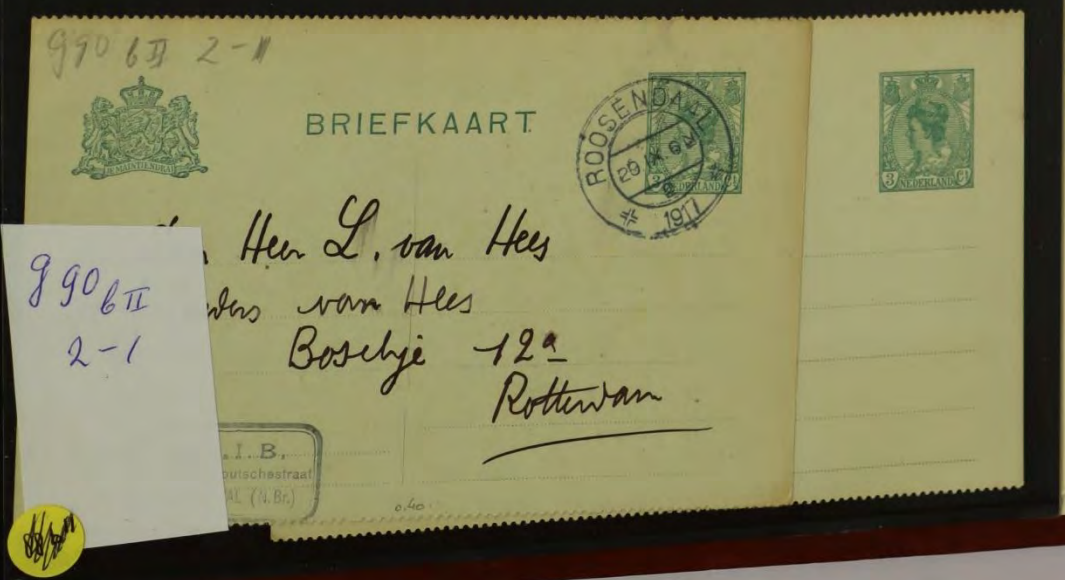 g90 b II 2-1
JE MAINTIENDRAI
BRIEFKAART.
ROOSENDAAL
29 IX 6
1917
NEDERLAND
3 NEDERLAND Ct
Heer L. van Hees
van Hees
Boschje 12a
Rotterdam
g 90 b II
2-1
.I.B.
outschestraat
AL (N.Br.)
0.40